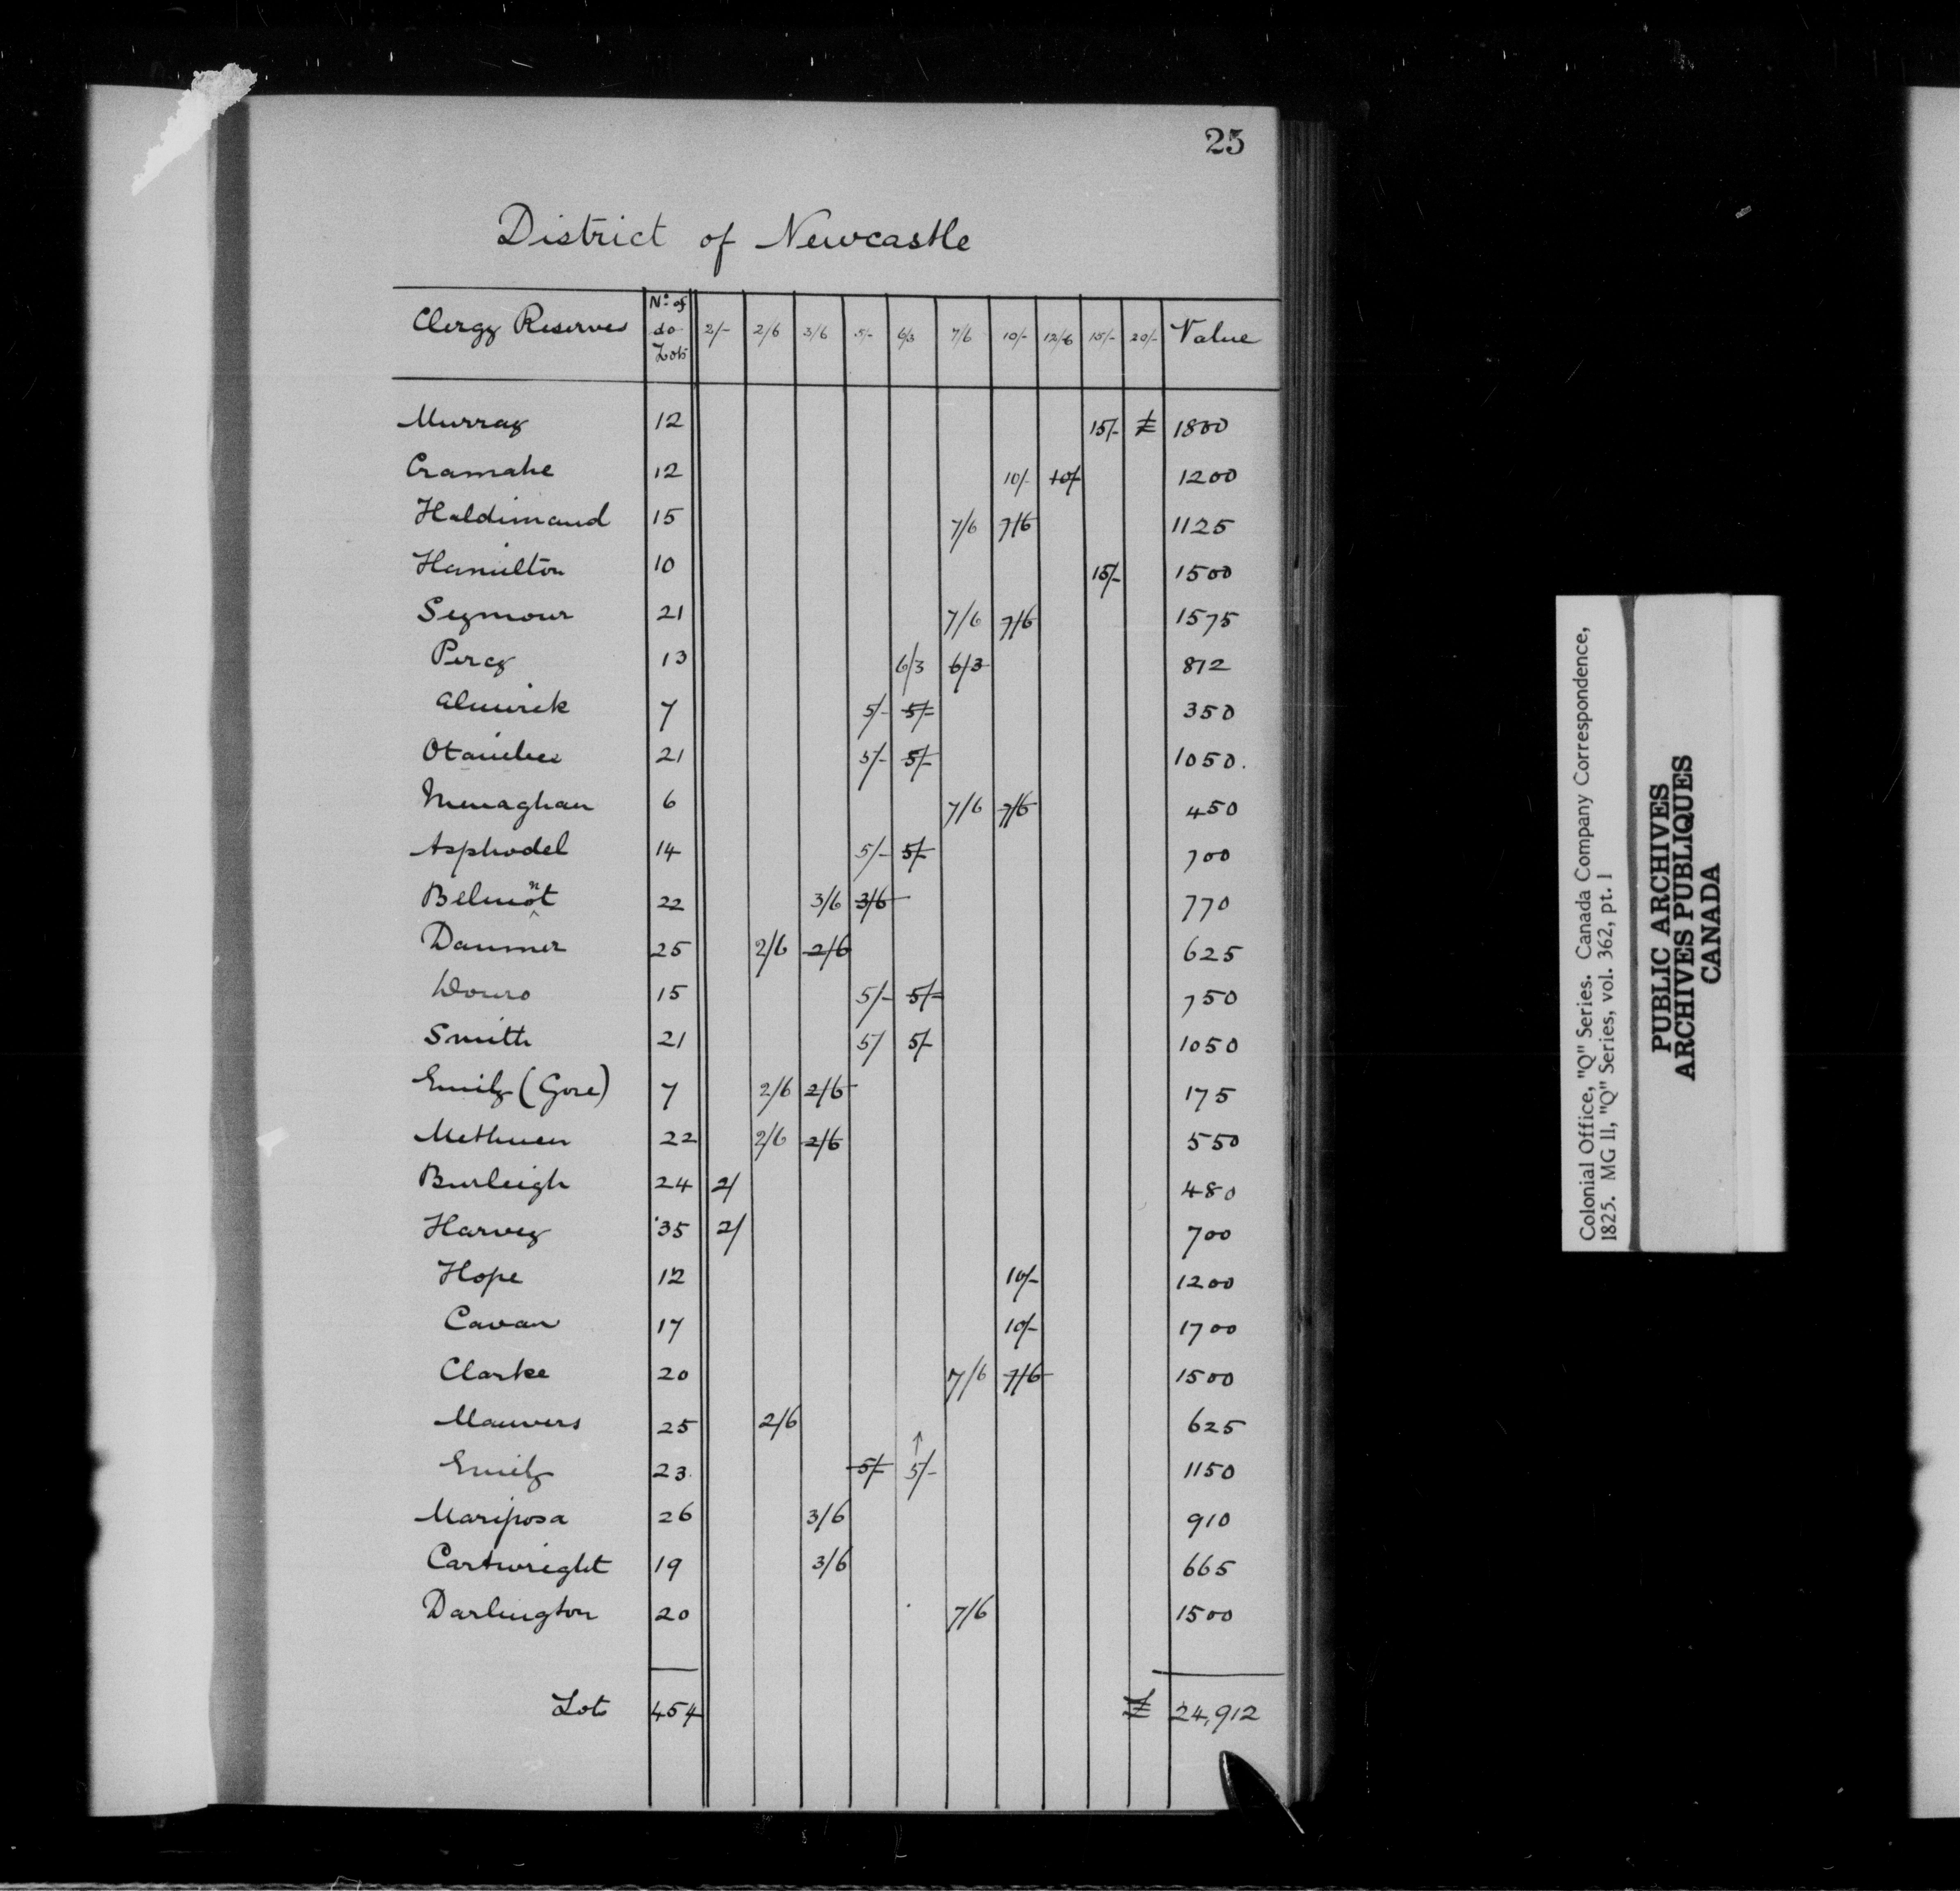 25
District of Newcastle
Clergy Reserves Nº of do Lots 2/- 2/6 3/6 5/- 6/3 7/6 10/- 12/6 15/- 20/- Value
Murray 12 15/- £ 1800
Cramahe 12 10/- 10/- 1200
Haldimand 15 7/6 7/6 1125
Hamilton 10 15/- 1500
Seymour 21 7/6 7/6 1575
Percy 13 6/3 6/3 812
Alnwick 7 5/- 5/- 350
Otanibee 21 5/- 5/- 1050.
Monaghan 6 7/6 7/6 450
Asphodel 14 5/- 5/- 700
Belmont 22 3/6 3/6 770
Dummer 25 2/6 2/6 625
Douro 15 5/- 5/- 750
Smith 21 5/ 5/- 1050
Emily (Gore) 7 2/6 2/6 175
Methuen 22 2/6 2/6 550
Burleigh 24 2/ 480
Harvey 35 2/ 700
Hope 12 10/- 1200
Cavan 17 10/- 1700
Clarke 20 7/6 7/6 1500
Manvers 25 2/6 625
Emily 23 5/- 5/- 1150
Mariposa 26 3/6 910
Cartwright 19 3/6 665
Darlington 20 7/6 1500
Lots 454 £ 24,912
Colonial Office, "Q" Series. Canada Company Correspondence,
1825. MG 11, "Q" Series, vol. 362, pt. 1
PUBLIC ARCHIVES
ARCHIVES PUBLIQUES
CANADA